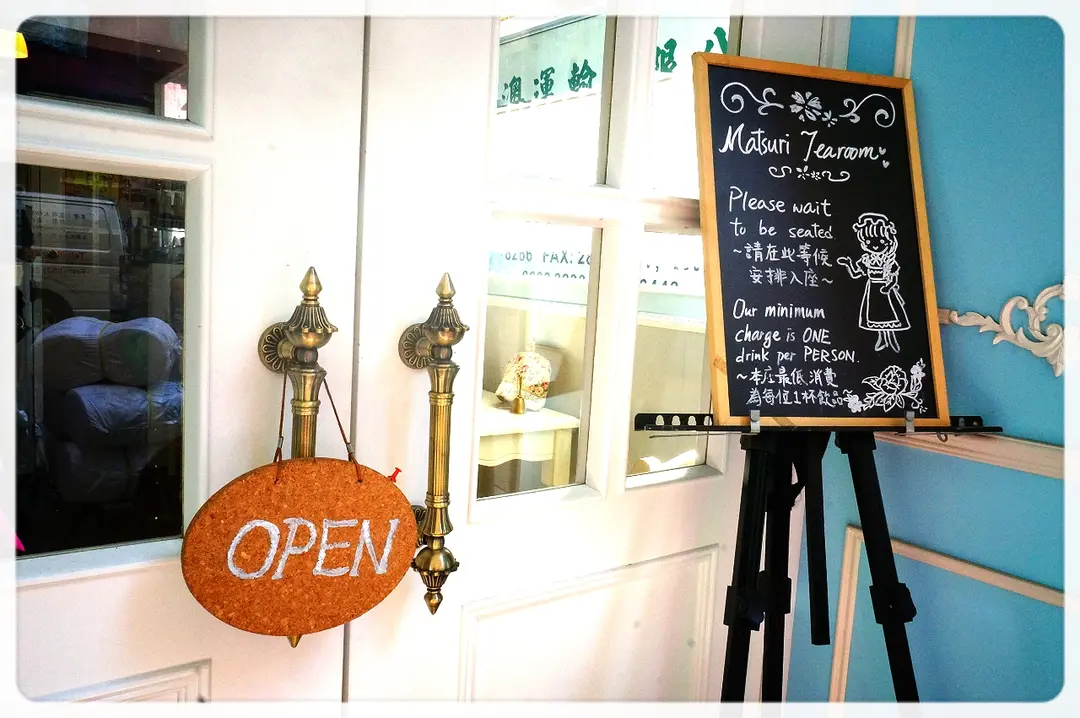 OPEN
Matsuri Tearoom
Please wait
to be seated
~請在此等候
安排入座~
Our minimum
charge is ONE
drink per PERSON.
~本店最低消費
為每位1杯飲品~
運輸
FAX: 28